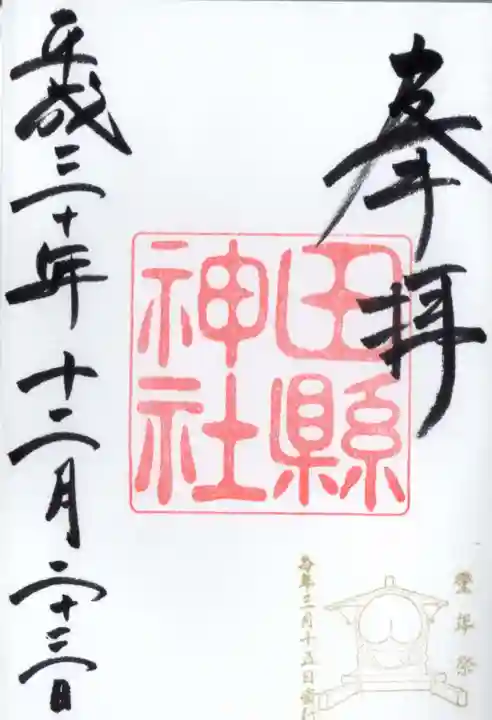 奉拝
田縣
神社
平成三十年十二月二十三日
豊年祭
毎年三月十五日斎行